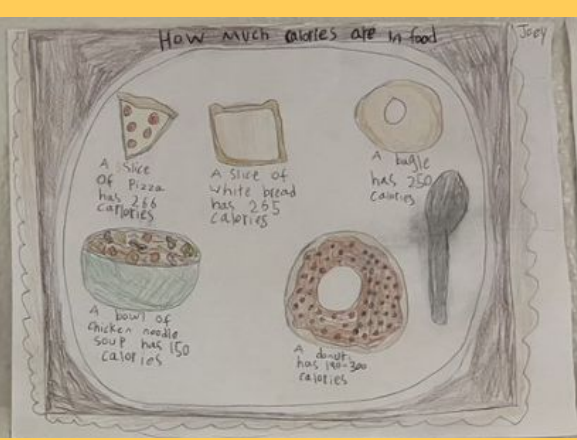 How Much calories are in food
Joey
A Slice
Of Pizza
has 266
calories
A slice of
white bread
has 265
calories
A bagle
has 250
calories
A bowl of
chicken noodle
soup has 150
calories
A donut
has 190-300
calories